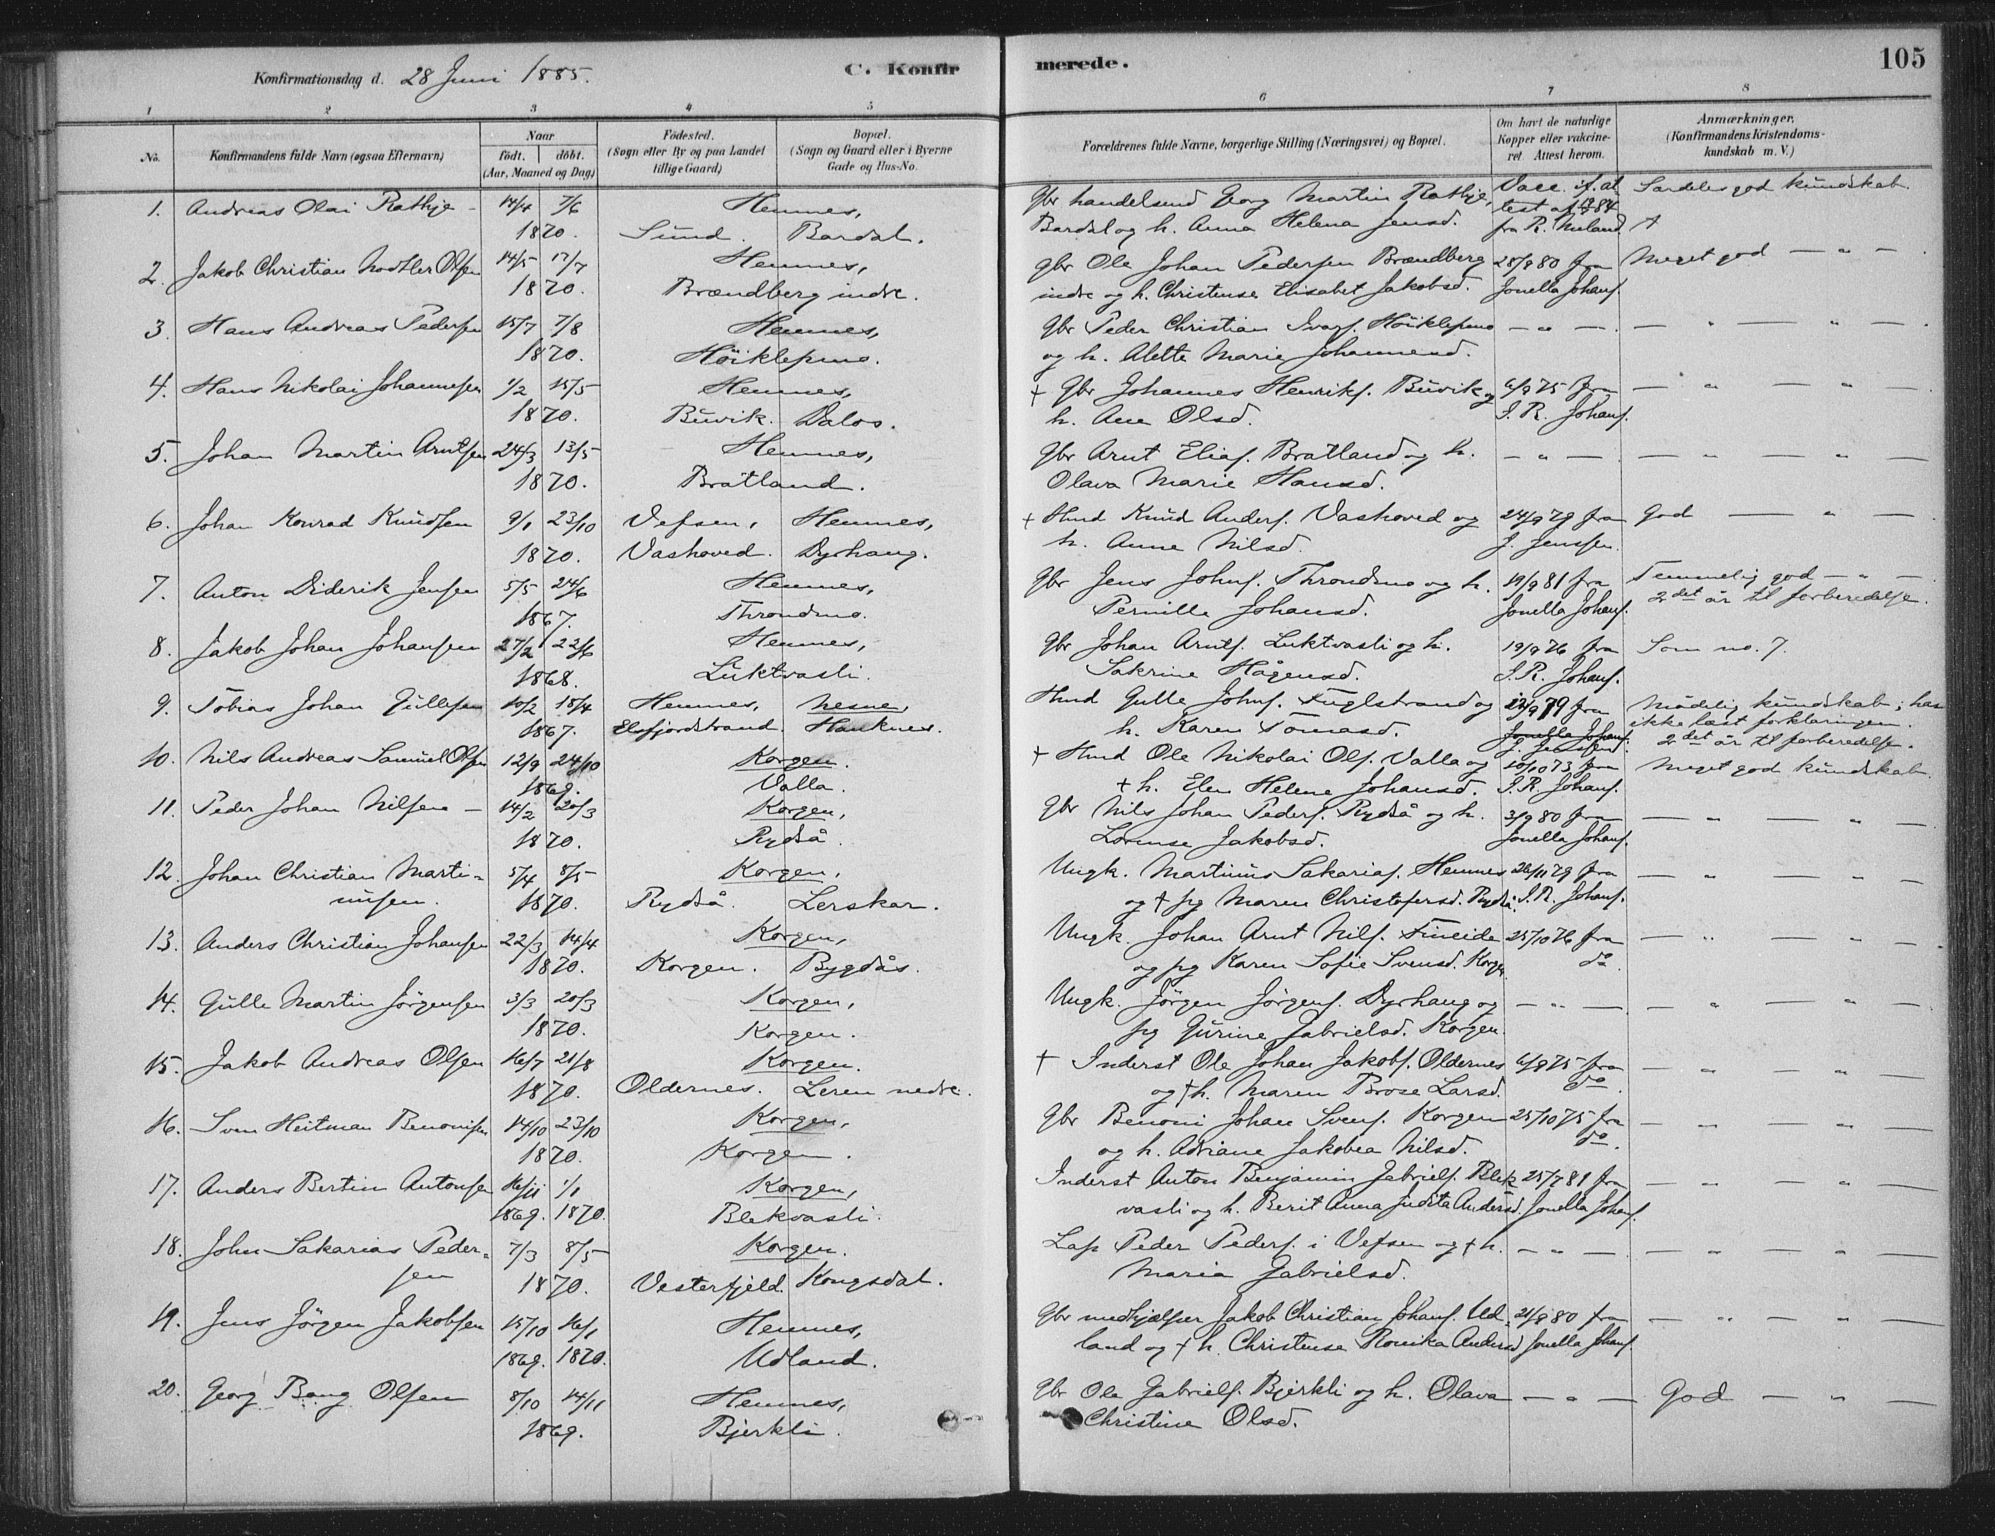 105
Konfirmationsdag d. 28 Juni 1885.
C. Konfirmerede.
1 2 3 4 5 6 7 8
No. Konfirmandens fulde Navn (ogsaa Efternavn)
Naar født. døbt. (Aar, Maaned og Dag)
Fødested. (Sogn eller By og paa Landet tillige Gaard)
Bopæl. (Sogn og Gaard eller i Byerne Gade og Hus-No.
Forældrenes fulde Navne, borgerlige Stilling (Næringsvei) og Bopæl.
Om havt de naturlige Kopper eller vakcineret. Attest herom.
Anmærkninger. (Konfirmandens Kristendomskundskab m. V.)
1. Andreas Olai Rathje – 14/4 7/6 Hemnes, Gbr handelsmd Georg Martin Rathje, Vacc. if. at- Særdeles god kundskab.
1870. Sund. Bardal. Bardal og h. Anna Helena Jensd. test af 84 fra R.
2. Jakob Christian Olsen 14/5 17/7 Hemnes, Gbr Ole Johan Pedersen Brændberg 28/9 80 fra Meget god — " —
1870. Brændberg indre. indre og h. Christense Elisabet Jakobsd. Jonella Johans.
3 Hans Andreas Pedersen 15/7 7/8 Hemnes, Gbr Peder Christian Ivars. Höiklepmo — " — — " — " —
1870. Höiklepmo. og h. Alette Marie Johannesd.
4. Hans Nikolai Johannesen 1/2 15/5 Hemnes, † Gbr Johannes Henriks. Buvik og 6/9 75 fra — " — " —
1870. Buvik. Dalos. h. Ane Olsd. I. R. Johans.
5. Johan Martin Arntsen 24/3 13/5 Hemnes, Gbr Arnt Elias. Bratland og h. — " — — " — " —
1870. Bratland. Olava Marie Hansd.
6. Johan Konrad Knudsen 9/1 23/10 Vefsen, Hemnes, † Hmd Knud Anders. Vashoved og 24/9 79 fra God — " —
1870. Vashoved. Dyrhaug. h. Anne Nilsd. J. Jenssen.
7. Anton Diderik Jensen 5/5 24/6 Hemnes, Gbr Jens Johns. Throndmo og h. 19/9 81 fra Temmelig god — " —
1867. Throndmo. Pernille Johansd. Jonella Johans. 2det år til forberedelse.
8. Jakob Johan Johansen 27/2 22/6 Hemnes, Gbr Johan Arnts. Luktvasli og h. 19/9 76 fra Som no. 7.
1868. Luktvasli. Sakrine Hågensd. I. R. Johans.
9. Tobias Johan Gullesen 10/2 18/4 Hemnes, Nesne, Hmd Gulle Johns. Fuglstrand og 79 fra Mådelig kundskab; har
1867. Elsfjordstrand Hauknes. h. Karen Tomasd. Jonella Johans. J. Jenssen. ikke læst forklaringen. 2det år til forberedelse.
10. Nils Andreas Samuel Olsen 12/9 24/10 Korgen. † Hmd Ole Nikolai Ols. Valla og 10/10 73 fra Meget god kundskab.
1869. Valla. † h. Elen Helene Johansd. I. R. Johans.
11. Peder Johan Nilsen — 14/2 20/3 Korgen, Gbr Nils Johan Peders. Rydså og h. 3/9 80 fra — " — " —
1870. Rydså. Lorense Jakobsd. Jonella Johans.
12. Johan Christian Marti- 5/4 8/5 Korgen, Ungk. Martinus Sakarias. Hemnes 26/11 79 fra — " — " —
nusen. 1870. Rydså. Lerskar. og † pg Maren Christofersd. Rydså. I. R. Johans.
13. Anders Christian Johansen 22/3 14/4 Korgen, Ungk. Johan Arnt Nils. Fineide 25/10 76 fra — " — " —
1870. Korgen. Bygdås. og pg Karen Sofie Svensd. Korgen do.
14. Gulle Martin Jörgensen 3/3 20/3 Korgen, Ungk. Jörgen Jörgens. Dyrhaug og — " — — " — " —
1870. Korgen. pg Gurine Gabrielsd. Korgen.
15. Jakob Andreas Olsen 16/7 21/8 Korgen. † Inderst Ole Johan Jakobs. Oldernes 6/9 75 fra — " — " —
1870. Oldernes. Leren nedre. og † h. Maren Brose Larsd. do.
16. Sven Heitman Benonisen 14/10 23/10 Korgen, Gbr Benoni Johan Svens. Korgen 25/10 75 fra — " — " —
1870. Korgen. og h. Adriane Jakobea Nilsd. do.
17. Anders Bertin Antonsen 16/11 1/1 Korgen, Inderst Anton Benjamin Gabriels. Blek- 25/9 81 fra — " — " —
1869. 1870. Blekvasli. vasli og h. Berit Anna Judita Andersd. Jonella Johans.
18. John Sakarias Peder- 7/3 8/5 Korgen. Lap Peder Peders. i Vefsen og † h. — " — — " — " —
sen 1870. Vesterfjeld. Kongsdal. Maria Gabrielsd.
19. Jens Jörgen Jakobsen 15/10 16/1 Hemnes, Gbr medhjælper Jakob Christian Johans. Ud- 21/9 80 fra — " — " —
1869. 1870. Udland. land og † h. Christense Ronika Andersd. Jonella Johans.
20. Georg Bang Olsen 8/10 14/11 Hemnes, Gbr Ole Gabriels. Bjerkli og h. Olava — " — God — " —
1869. Bjerkli. Christine Olsd.